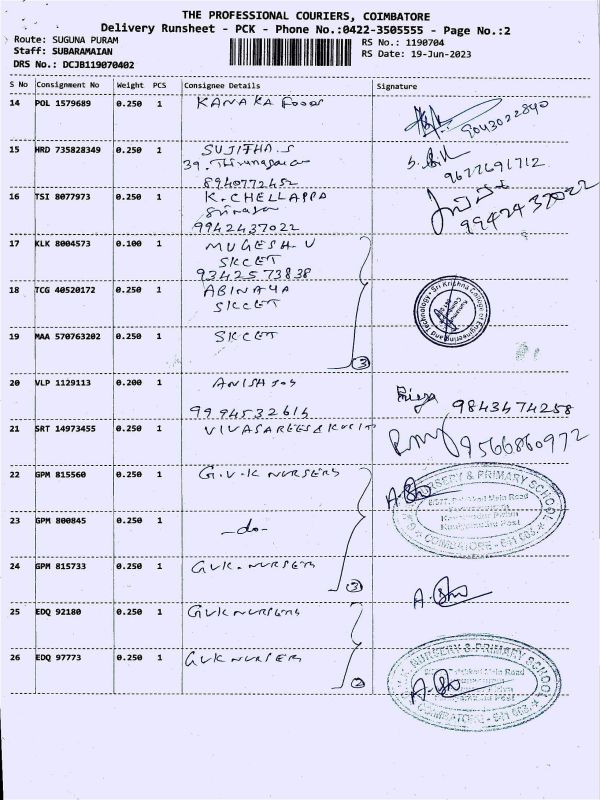 THE PROFESSIONAL COURIERS, COIMBATORE
Delivery Runsheet - PCK - Phone No.:0422-3505555 - Page No.:2
Route: SUGUNA PURAM
RS No.: 1190704
Staff: SUBARAMAIAN
RS Date: 19-Jun-2023
DRS No.: DCJB119070402
S No Consignment No Weight PCS Consignee Details Signature
14 POL 1579689 0.250 1 KANAKA Foods
9043022840
15 HRD 735828349 0.250 1 SUJITHA.S
39.
8940772452
9677691712
16 TSI 8077973 0.250 1 K.CHELLAPPA
9942437022
9942437022
17 KLK 8004573 0.100 1 MUGESH.V
SKCET
9342573838
18 TCG 40520172 0.250 1 ABINAYA
SKCET
Sri Krishna College of Engineering and Technology
19 MAA 570763202 0.250 1 SKCET
3
20 VLP 1129113 0.200 1 ANISH JOY
9994532614
9843474258
21 SRT 14973455 0.250 1
9566860972
22 GPM 815560 0.250 1 G.V.K NURSERY
NURSERY & PRIMARY SCHOOL
Main Road
Post
COIMBATORE - 641 008
23 GPM 800845 0.250 1 -do-
24 GPM 815733 0.250 1 GVK. NURSERY
3
25 EDQ 92180 0.250 1 GVK NURSERY
26 EDQ 97773 0.250 1 GVK NURSERY
2
NURSERY & PRIMARY SCHOOL
Main Road
COIMBATORE - 641 008